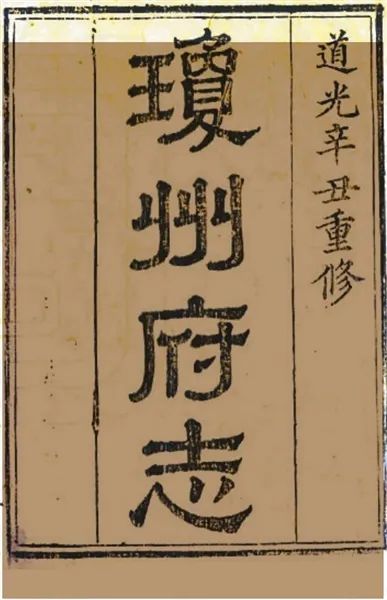 道光辛丑重修
瓊州府志